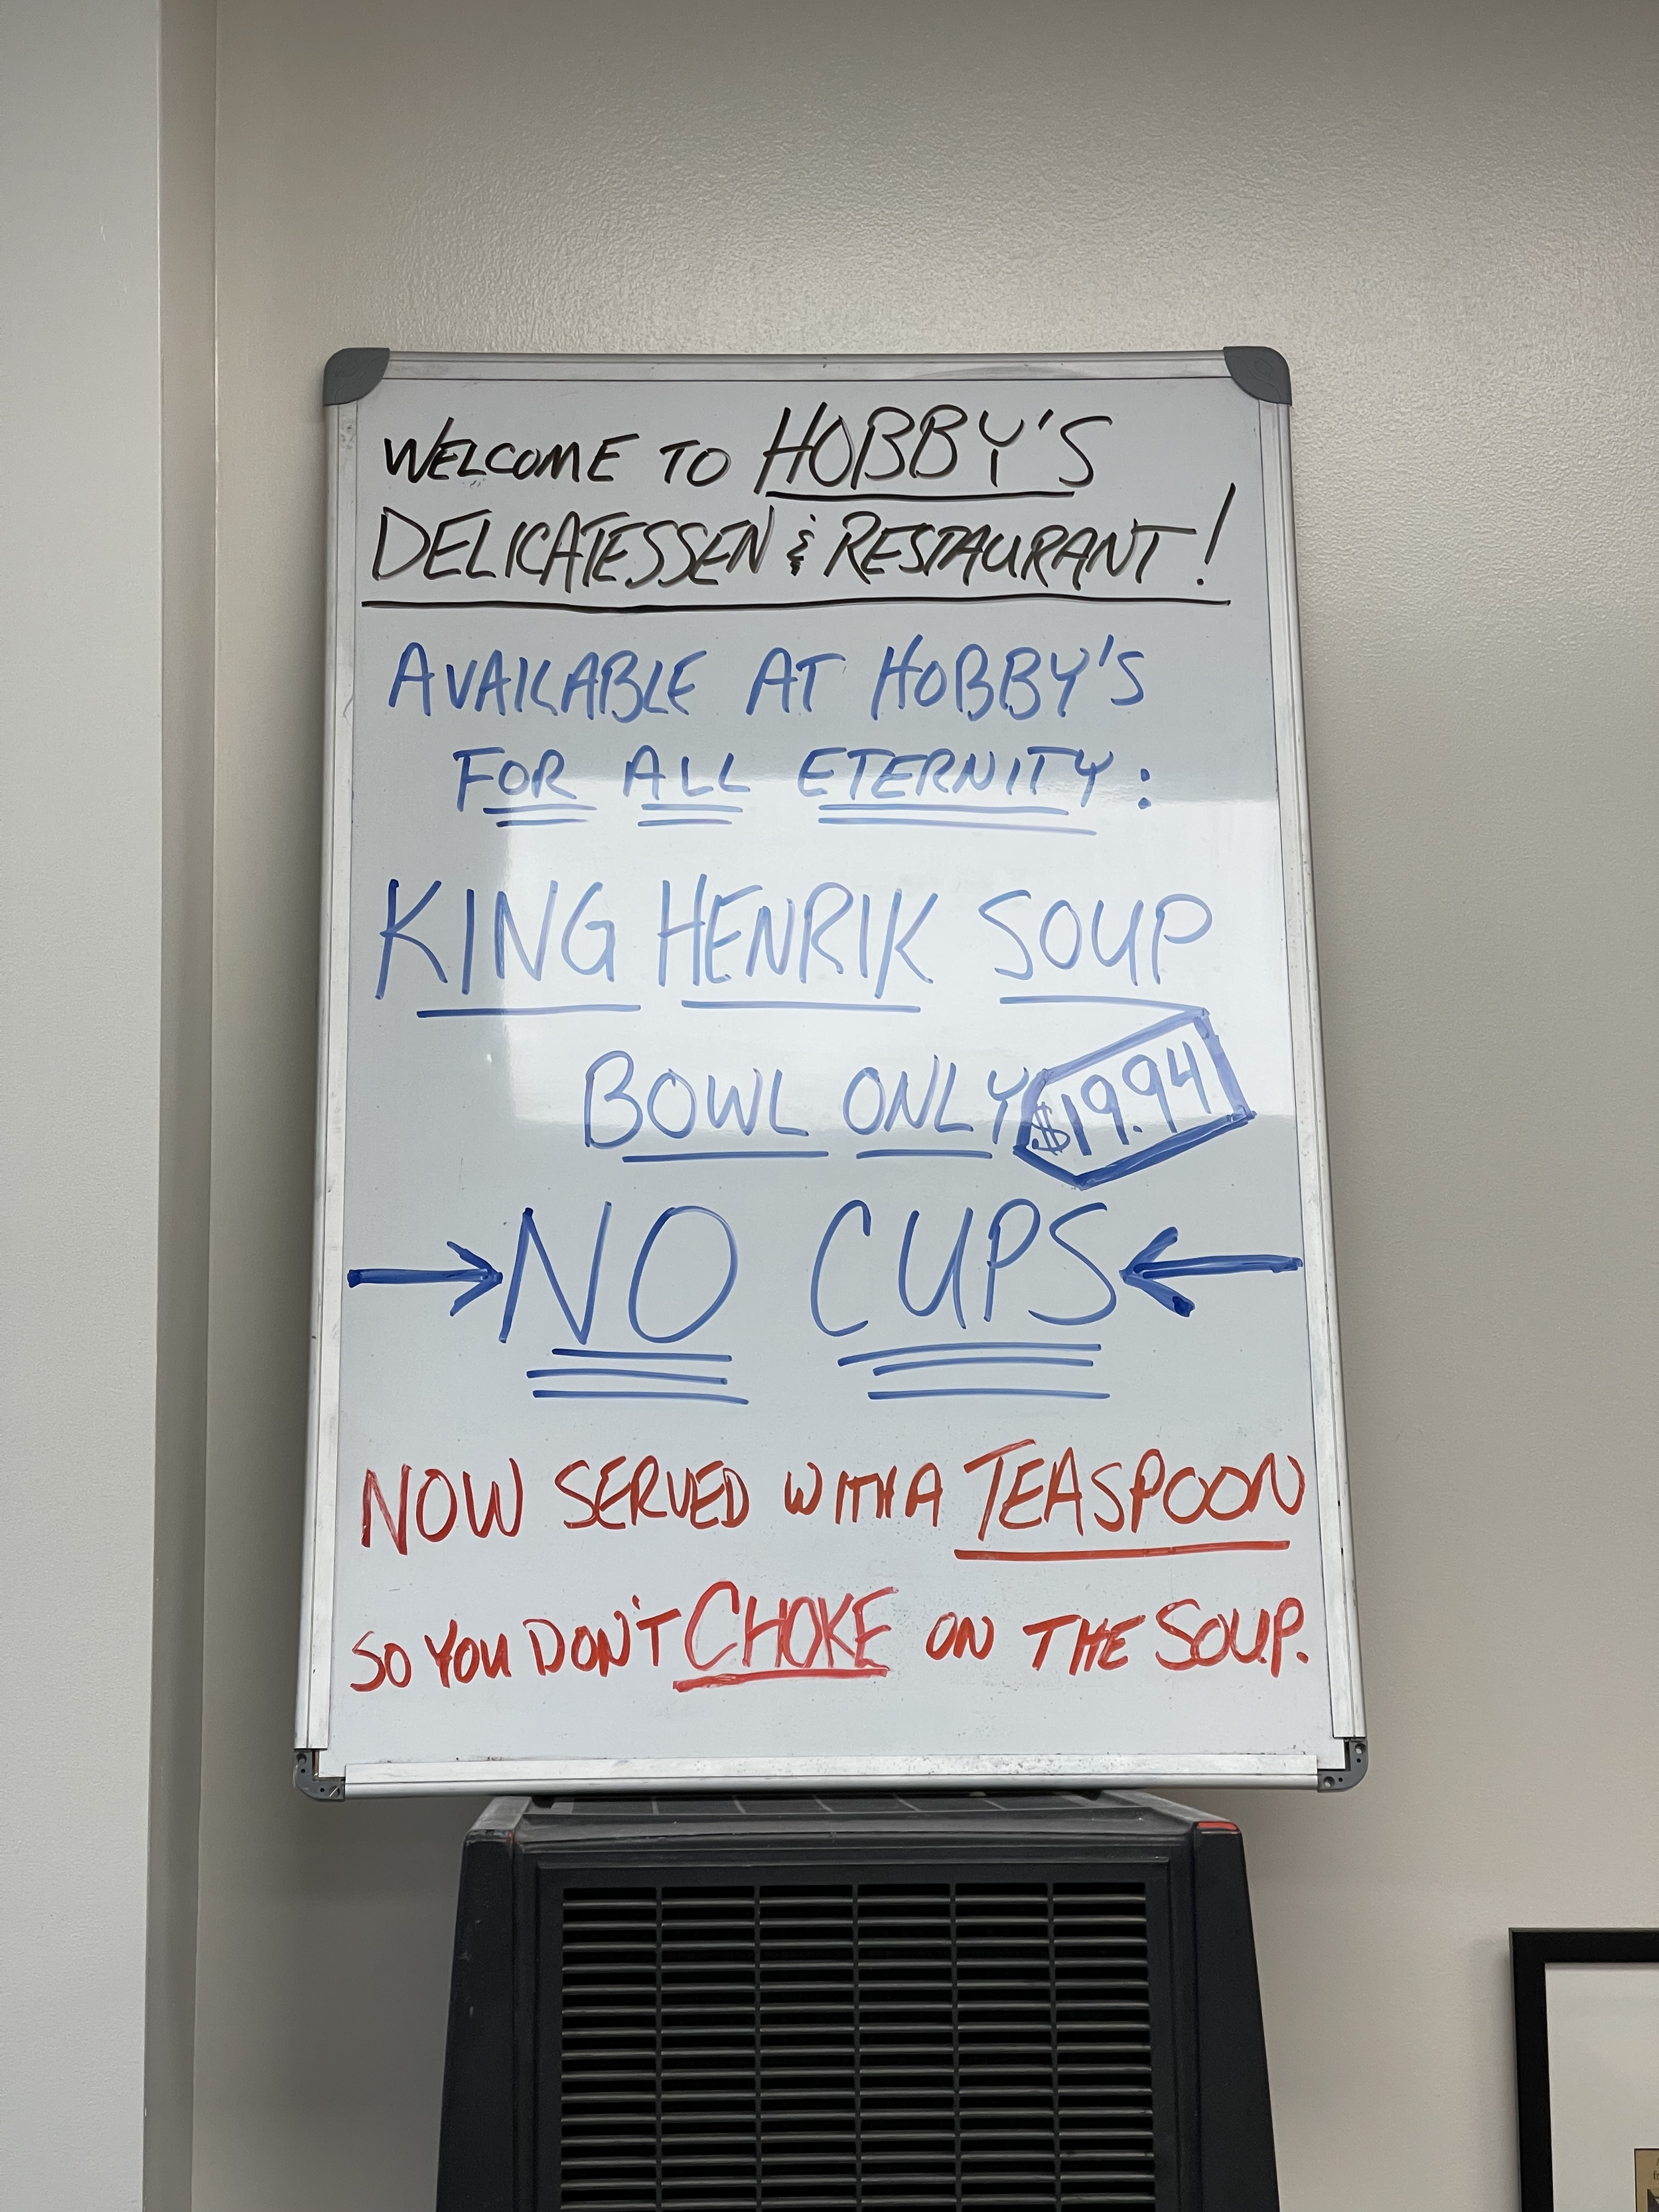 WELCOME TO HOBBY'S
DELICATESSEN & RESTAURANT!
AVAILABLE AT HOBBY'S
FOR ALL ETERNITY:
KING HENRIK SOUP
BOWL ONLY $19.94
→ NO CUPS ←
NOW SERVED WITH A TEASPOON
SO YOU DON'T CHOKE ON THE SOUP.